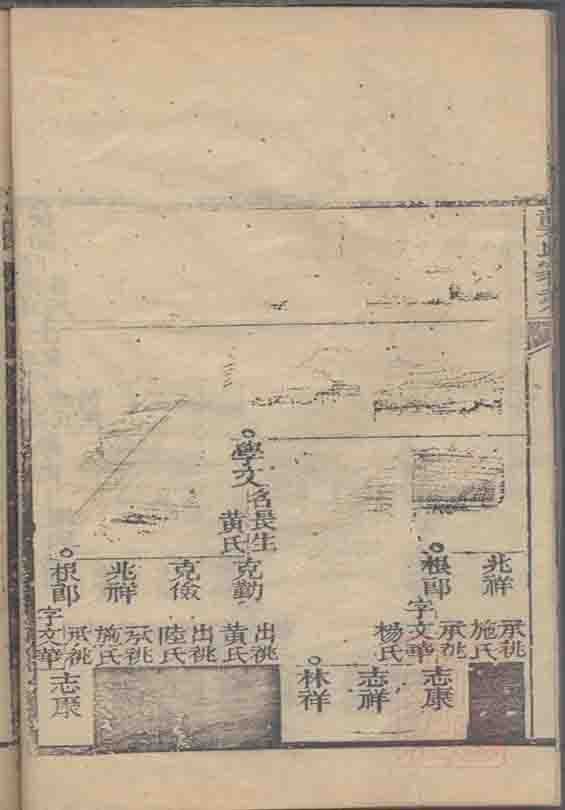 兆祥
承祧
施氏
根郎
承祧
字文華
楊氏
志康
志祥
林祥
學文
名長生
黄氏
克勤
出祧
黄氏
克儉
出祧
陸氏
兆祥
承祧
施氏
根郎
承祧
字文華
志康